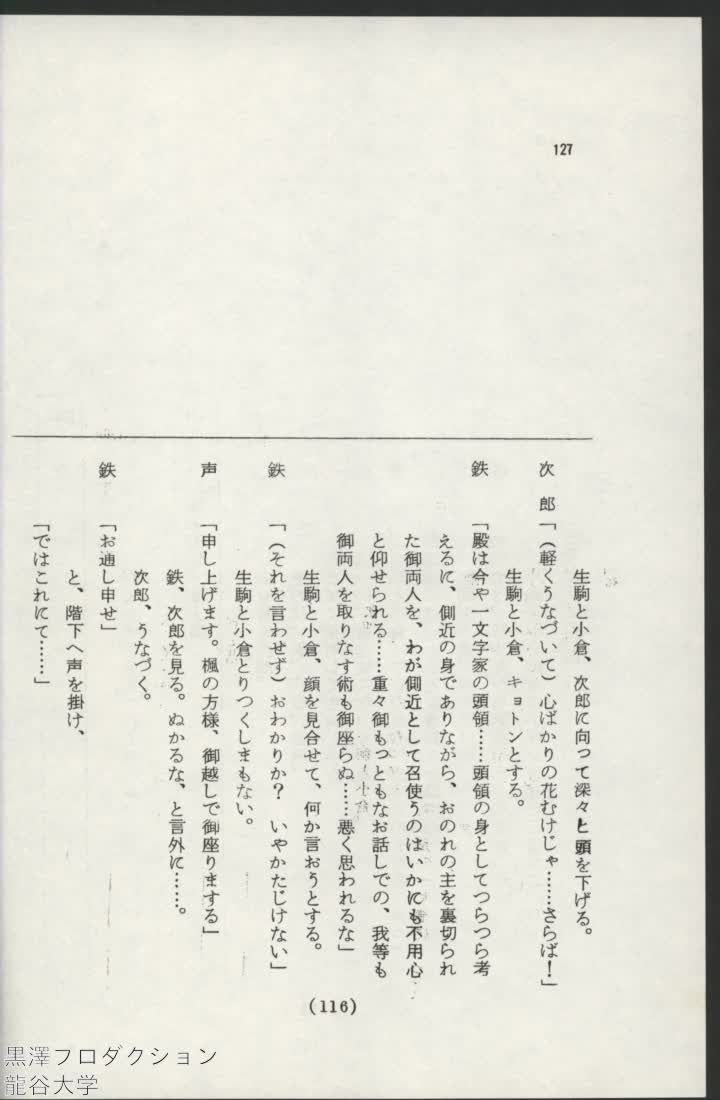 127
生駒と小倉、次郎に向って深々と頭を下げる。
次郎「（軽くうなづいて）心ばかりの花むけじゃ……さらば！」
生駒と小倉、キョトンとする。
鉄「殿は今や一文字家の頭領……頭領の身としてつらつら考
えるに、側近の身でありながら、おのれの主を裏切られ
た御両人を、わが側近として召使うのはいかにも不用心
と仰せられる……重々御もっともなお話しでの、我等も
御両人を取りなす術も御座らぬ……悪く思われるな」
生駒と小倉、顔を見合せて、何か言おうとする。
鉄「（それを言わせず）おわかりか？　いやかたじけない」
生駒と小倉とりつくしまもない。
声「申し上げます。楓の方様、御越しで御座りまする」
鉄、次郎を見る。ぬかるな、と言外に……。
次郎、うなづく。
鉄「お通し申せ」
と、階下へ声を掛け、
「ではこれにて……」
(116)
黒澤フロダクション
龍谷大学